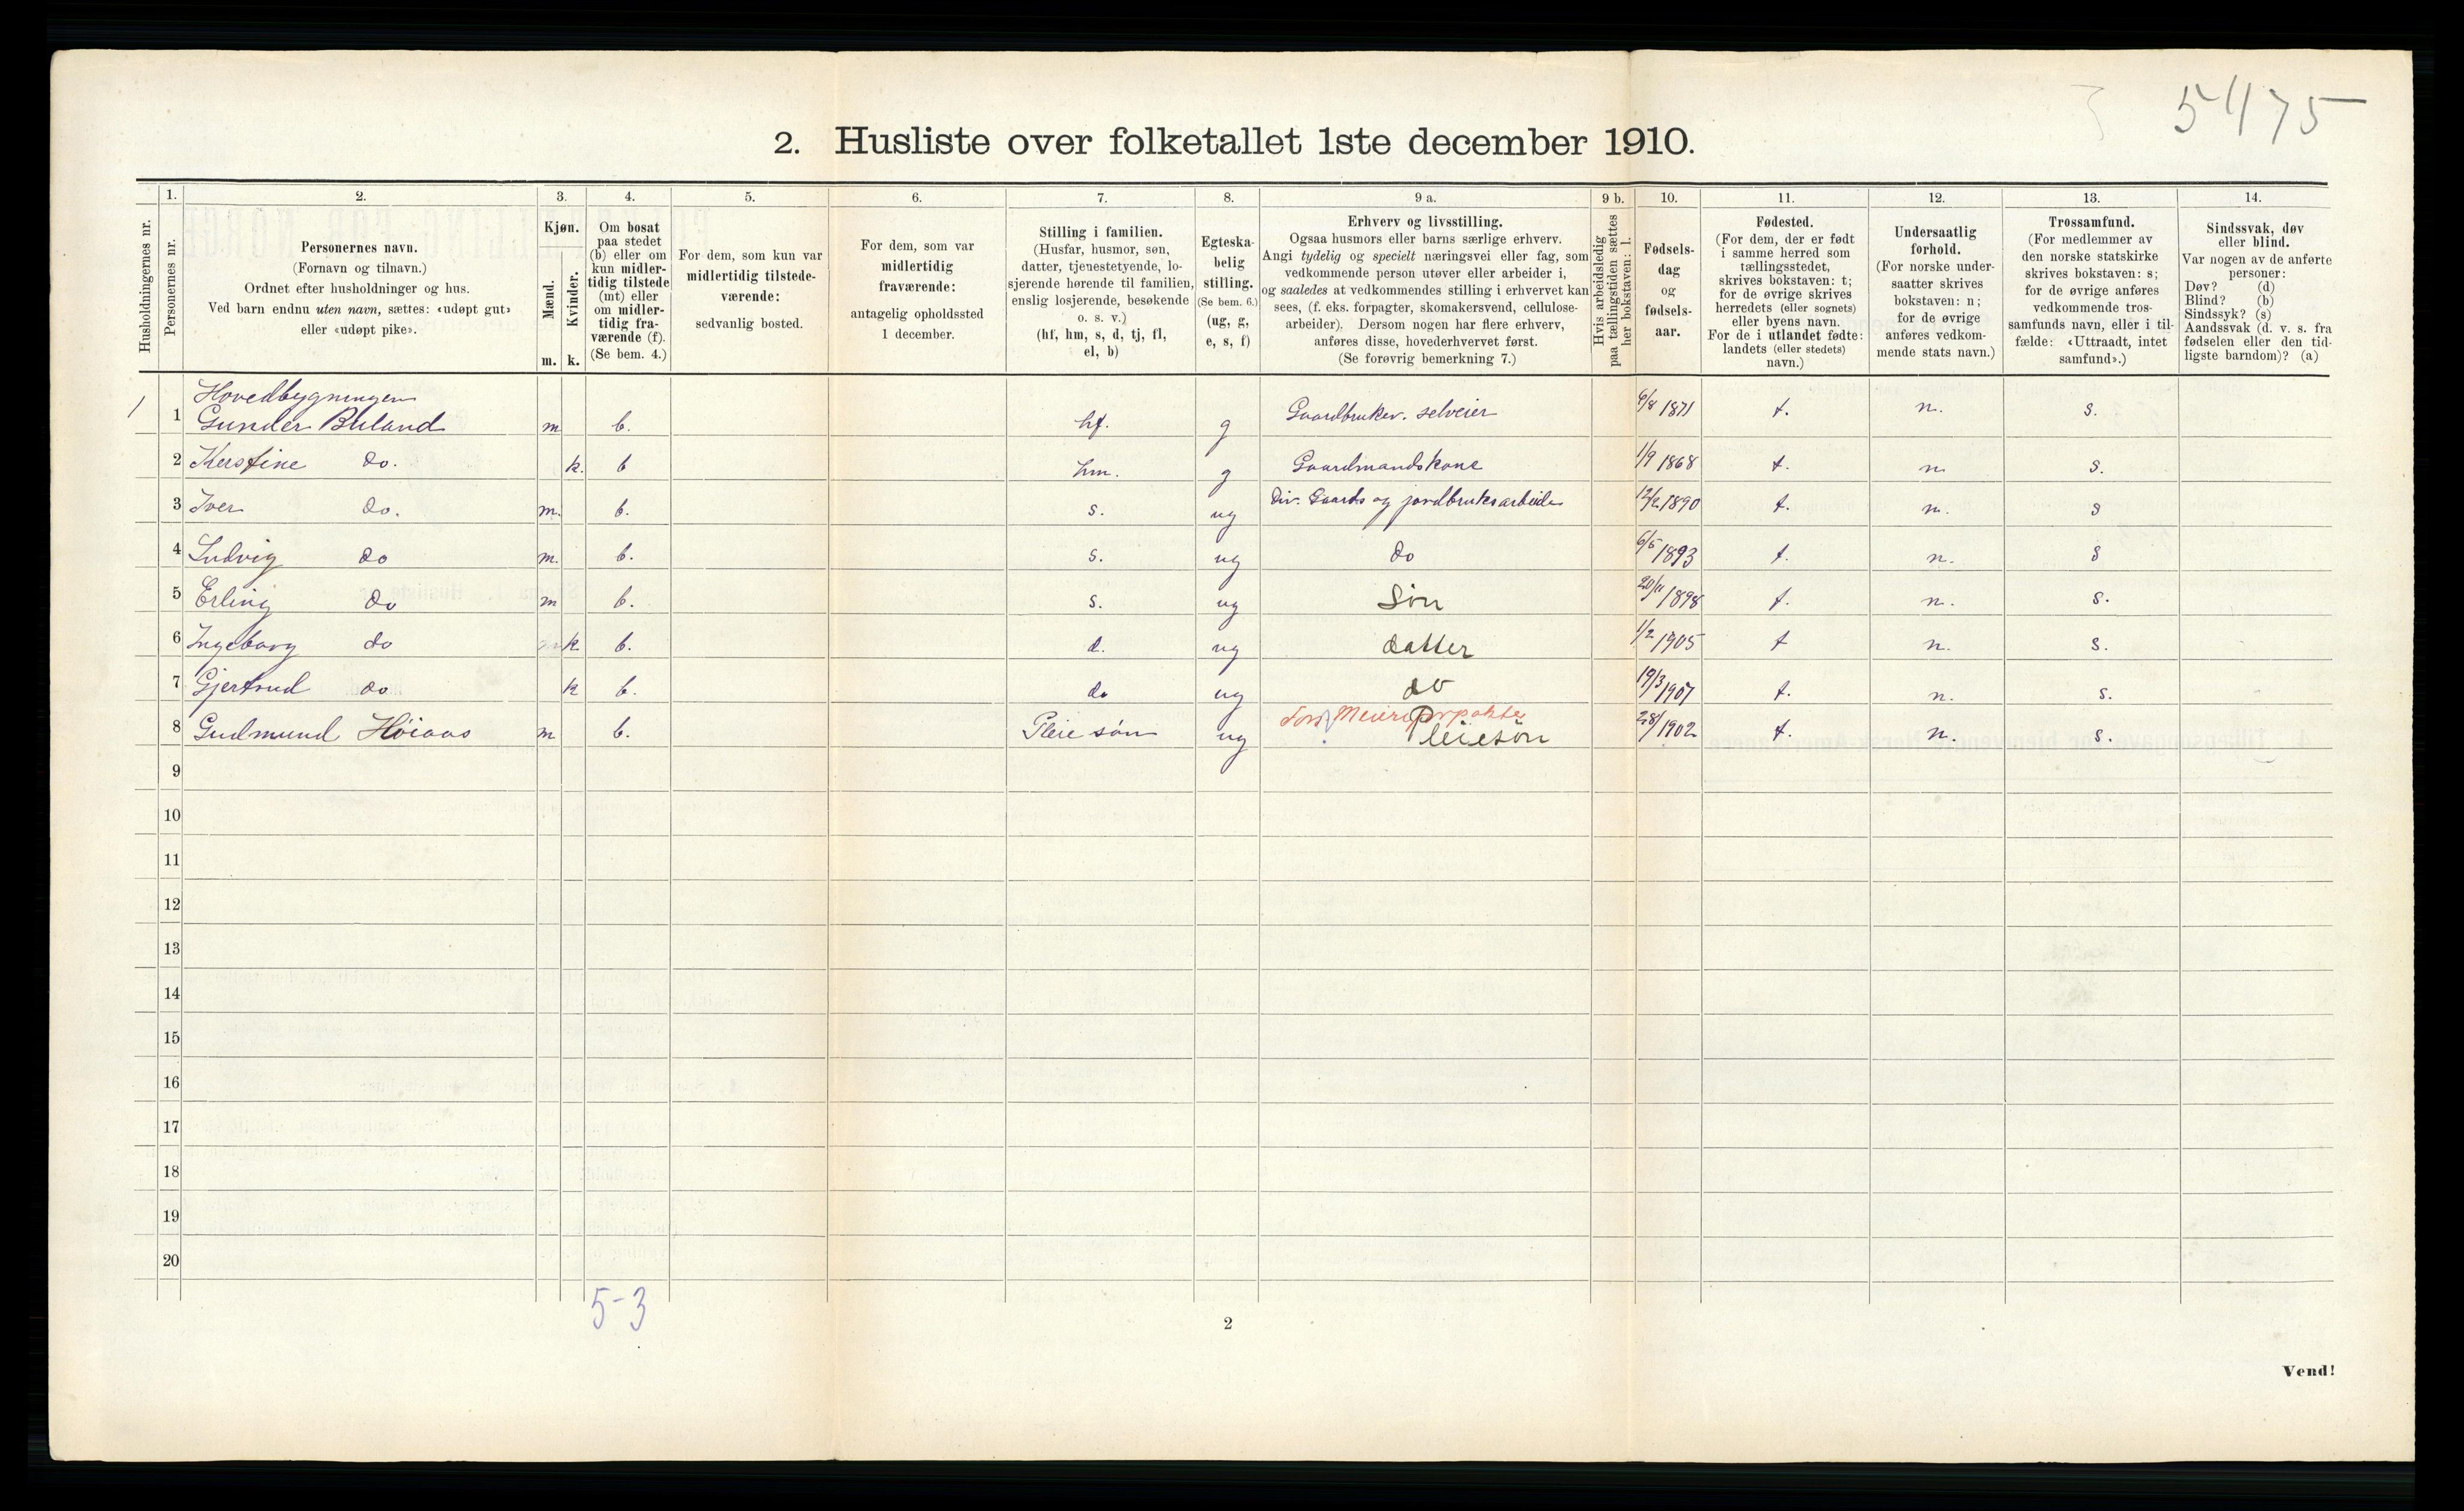 5475
2. Husliste over folketallet 1ste december 1910.
Husholdningernes nr.
1.
Personernes nr.
2.
Personernes navn.
(Fornavn og tilnavn.)
Ordnet efter husholdninger og hus.
Ved barn endnu uten navn, sættes: «udøpt gut»
eller «udøpt pike».
3.
Kjøn.
Mænd.
Kvinder.
m. k.
4.
Om bosat
paa stedet
(b) eller om
kun midler-
tidig tilstede
(mt) eller
om midler-
tidig fra-
værende (f).
(Se bem. 4.)
5.
For dem, som kun var
midlertidig tilstede-
værende:
sedvanlig bosted.
6.
For dem, som var
midlertidig
fraværende:
antagelig opholdssted
1 december.
7.
Stilling i familien.
(Husfar, husmor, søn,
datter, tjenestetyende, lo-
sjerende hørende til familien,
enslig losjerende, besøkende
o. s. v.)
(hf, hm, s, d, tj, fl,
el, b)
8.
Egteska-
belig
stilling.
(Se bem. 6.)
(ug, g,
e, s, f)
9 a.
Erhverv og livsstilling.
Ogsaa husmors eller barns særlige erhverv.
Angi tydelig og specielt næringsvei eller fag, som
vedkommende person utøver eller arbeider i,
og saaledes at vedkommendes stilling i erhvervet kan
sees, (f. eks. forpagter, skomakersvend, cellulose-
arbeider). Dersom nogen har flere erhverv,
anføres disse, hovederhvervet først.
(Se forøvrig bemerkning 7.)
9 b.
Hvis arbeidsledig
paa tællingstiden sættes
her bokstaven: l.
10.
Fødsels-
dag
og
fødsels-
aar.
11.
Fødested.
(For dem, der er født
i samme herred som
tællingsstedet,
skrives bokstaven: t;
for de øvrige skrives
herredets (eller sognets)
eller byens navn.
For de i utlandet fødte:
landets (eller stedets)
navn.)
12.
Undersaatlig
forhold.
(For norske under-
saatter skrives
bokstaven: n;
for de øvrige
anføres vedkom-
mende stats navn.)
13.
Trossamfund.
(For medlemmer av
den norske statskirke
skrives bokstaven: s;
for de øvrige anføres
vedkommende tros-
samfunds navn, eller i til-
fælde: «Uttraadt, intet
samfund».)
14.
Sindssvak, døv
eller blind.
Var nogen av de anførte
personer:
Døv? (d)
Blind? (b)
Sindssyk? (s)
Aandssvak (d. v. s. fra
fødselen eller den tid-
ligste barndom)? (a)
Hovedbygningen
1 1 Gunder Birland m b. hf. g Gaardbruker. selveier 6/8 1871 t. n. s.
2 Kerstine do. k. b hm. g Gaardmandskone 1/9 1868 t. n s.
3 Iver do. m. b. s. ug Div. Gaards og jordbruksarbeide 12/2 1890 t. n. s
4 Ludvig do m. b. s. ug do 6/5 1893 t. n. s
5 Erling do m b. s. ug Søn 20/11 1898 t. n. s.
6 Ingeborg do k b. d. ug datter 1/2 1905 t n. s.
7 Gjertrud do k b. do ug do 19/3 1907 t. n. s.
8 Gudmund Höiaas m b. Pleie søn ug Pleiesön 1902 t. n. s.
9
10
11
12
13
14
15
16
17
18
19
20
5-3
2
Vend!